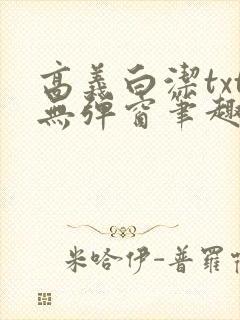 高義白潔txt
無彈窗筆趣
米哈伊-普羅